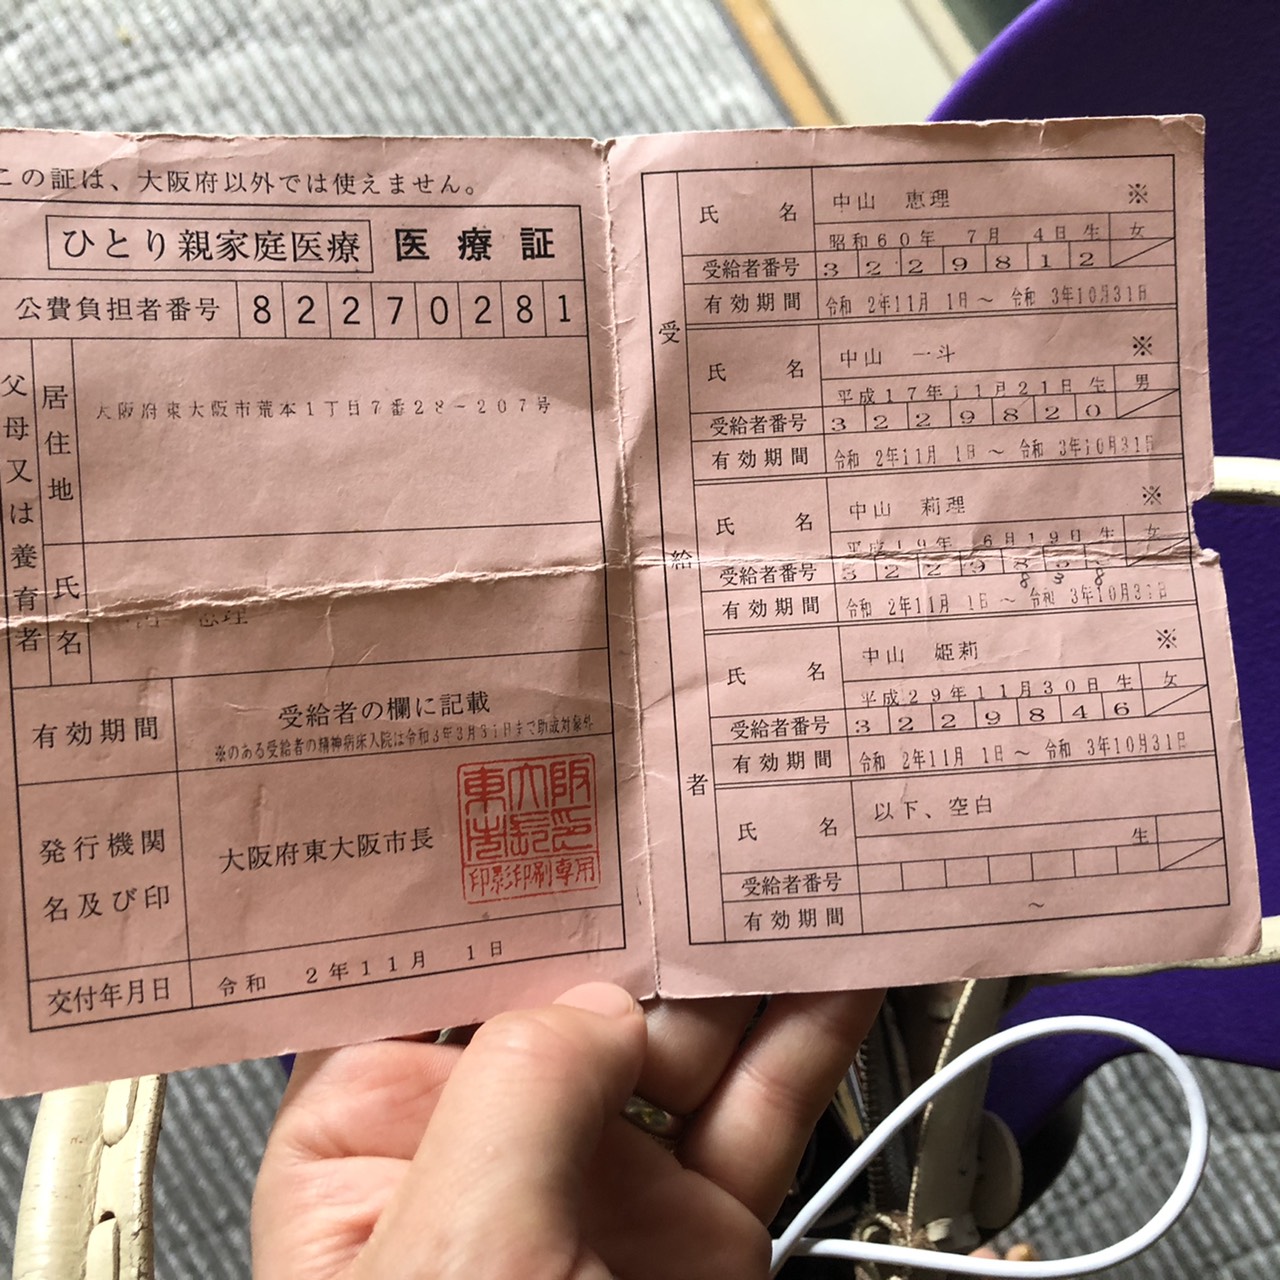 この証は、大阪府以外では使えません。
ひとり親家庭医療 医療証
公費負担者番号 82270281
父母又は養育者
居住地 大阪府東大阪市荒本1丁目7番28－207号
氏名 恵理
有効期間 受給者の欄に記載
※のある受給者の精神病床入院は令和3年3月31日まで助成対象外
発行機関名及び印 大阪府東大阪市長
印影印刷専用
交付年月日 令和 2年11月 1日
受給者
氏名 中山 恵理 ※
昭和60年 7月 4日生 女
受給者番号 3229812
有効期間 令和 2年11月 1日～ 令和 3年10月31日
氏名 中山 一斗 ※
平成17年11月21日生 男
受給者番号 3229820
有効期間 令和 2年11月 1日～ 令和 3年10月31日
氏名 中山 莉理 ※
平成19年 6月19日生 女
受給者番号 3229
838
有効期間 令和 2年11月 1日～ 令和 3年10月31日
氏名 中山 姫莉 ※
平成29年11月30日生 女
受給者番号 3229846
有効期間 令和 2年11月 1日～ 令和 3年10月31日
氏名 以下、空白
生
受給者番号
有効期間 ～